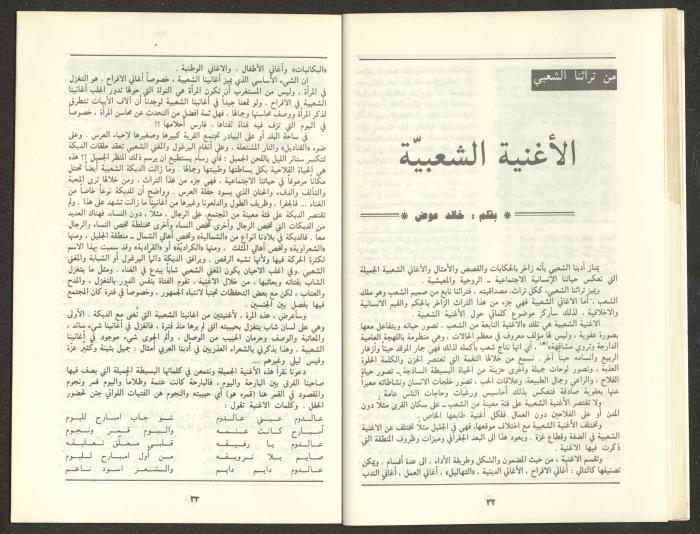 من تراثنا الشعبي
الأغنية الشعبيّة
* بقلم : خالد عوض *
يمتاز أدبنا الشعبي بأنه زاخر بالحكايات والقصص والأمثال والأغاني الشعبية الجميلة
التي تعكس حياتنا الإنسانية الاجتماعية ـ الروحية والمعيشية .
ويميز تراثنا الشعبي، ككل تراث، مصداقيته . فتراثنا نابع من صميم الشعب وهو ملك
الشعب . أما الاغاني الشعبية فهي جزء من هذا التراث الزاخر بالحكم والقيم الانسانية
والاخلاقية . لذلك سأركز موضوع كلمتي حول الأغنية الشعبية .
الاغنية الشعبية هي تلك «الاغنية النابعة من الشعب ، تصور حياته ويتفاعل معها
بصورة عفوية ، وليس لها مؤلف معروف في معظم الحالات . وهي منظومة باللهجة العامية
الدارجة وتروى مشافهة» . أي انها نتاج شعب بأكمله لذلك فهي تصور نهار الموقد حيناً وأزهار
الربيع وانسامه حيناً آخر . نسمع من خلالها النغمة التي تعتصر الحزن والكلمة الحلوة
العذبة ، وتصور لوحات جميلة وأخرى حزينة من الحياة البسيطة الساذجة ـ تصور حياة
الفلاح ، والراعي وجمال الطبيعة، وعلاقات الحب . تصور خلجات الانسان ونشاطاته معبراً
عنها بعفوية صادقة فتعكس بذلك أحاسيس ورغبات وحاجات الناس عامة .
ولا تقتصر الأغنية الشعبية على فئة معينة من الشعب ـ على سكان القرى مثلاً دون
المدن أو على الفلاحين دون العمال فلكل أغنية طابعها الخاص .
وتختلف الأغنية الشعبية مع اختلاف موقعها، فهي في الجليل مثلاً تختلف عن الاغنية
الشعبية في الضفة وقطاع غزة . ويعود هذا الى البعد الجغرافي وميزات وظروف المنطقة التي
ذكرت فيها الاغنية .
وتقسم الاغنية ، من حيث المضمون والشكل وطريقة الأداء ، الى عدة أقسام . ويمكن
تصنيفها كالتالي : أغاني الافراح ، الأغاني الدينية ، «التهاليل» ، أغاني العمل ، أغاني الندب
٣٢
«البكائيات» وأغاني الأطفال ، والاغاني الوطنية .
ان الشيء الأساسي الذي يميز أغانينا الشعبية ، خصوصاً أغاني الافراح ، هو التغزل
في المرأة ، وليس من المستغرب أن تكون المرأة هي النواة التي حولها تدور أغلب أغانينا
الشعبية في الافراح . ولو تمعنا جيداً في أغانينا الشعبية لوجدنا أن آلاف الأبيات تتطرق
لذكر المرأة ووصف محاسنها وجمالها . فهل ثمة أفضل من التحدث عن محاسن المرأة ، خصوصاً
في اليوم التي تزف فيه فتاة لفتاها . فارس أحلامها ؟!
في ساحة البلد أو على البيادر تجتمع القرية كبيرها وصغيرها لإحياء العرس . وعلى
ضوء «القناديل» والنار المشتعلة ، وعلى أنغام اليرغول والمغني الشعبي تعقد حلقات الدبكة
لتكسر ستائر الليل باللحن الجميل ؛ فأي رسام يستطيع ان يرسم ذلك المنظر الجميل ؟! هذه
هي الحياة الفلاحية بكل بساطتها وطيبتها وجمالها . وما زالت الدبكة الشعبية أيضاً تحتل
مكاناً مرموقاً في حياتنا الاجتماعية ، فهي جزء من هذا التراث ، ومن خلالها ترى المحبة
والتآلف والدفء والحنان الذي يسود حفلة العرس . وواضح أن للدبكة نوعاً خاصاً من
الغناء ... فالجفرا ، وظريف الطول والدلعونا وغيرها من أغانينا ما زالت تشهد على هذا . ولم
تقتصر الدبكة على فئة معينة من المجتمع، على الرجال ، مثلاً ، دون النساء، فهناك العديد
من الدبكات التي تخص الرجال وأخرى تخص النساء وأخرى مختلطة تخص النساء والرجال
معاً . فالدبكة في بلادنا أنواع من «الشمالية» وتخص أهالي الشمال ـ منطقة الجليل ، ومنها
«الشعراوية» وتخص أهالي المثلث . ومنها «الكرادية» أو «القرادية» وقد سميت بهذا الاسم
لكثرة الحركة فيها ولأنها تشبه الرقص . ويرافق الدبكة دائماً اليرغول أو الشبابة والمغني
الشعبي .وفي اغلب الاحيان يكون المغني الشعبي شاباً يبدع في الغناء . ومثل ما يتغزل
الشاب بفتاته ويعاتبها ، من خلال الاغنية ، تقوم الفتاة بنفس الدور بالتغزل ، والمدح
والعتاب ، لكن مع بعض التحفظات تجنباً لانتباه الجمهور ، وخصوصاً في فترة كان المجتمع
فيها يفصل بين الجنسين .
وسأعرض ، هذه المرة ، لأغنيتين من اغانينا الشعبية التي تغنى مع الدبكة . الأولى
وهي على لسان شاب يتغزل بحبيبته التي لم يرها منذ فترة ، فالغزل في أغانينا شيء سائد ،
والمعاتبة والوصف وحرمان الحبيب من الوصال ، وألم الجوى شيء موجود في أغانينا
الشعبية . وهذا يذكرني بالشعراء العذريين في أدبنا العربي أمثال : جميل بثينة وكثير عزة
وقيس ليلى وغيرهم ....
دعونا نقرأ هذه الأغنية الجميلة ونتمعن في كلماتها البسيطة الجميلة التي يصف فيها
صاحبنا الفرق بين البارحة واليوم ، فالبارحة كانت عتمة وظلاماً واليوم قمر ونجوم
والمقصود في القمر هنا (قمره هو) أي حبيبته والنجوم هن الفتيات اللواتي جئن لحضور
الحفل . وكلمات الاغنية تقول :
عالـدوم عيني عالـدوم شو جاب امبارح لليوم
امبارح كانت عتمـة واليوم قمر ونجوم
عالدوم يا رفيقـه قلبي معلّق تعليقه
صايم بلا ترويقه من أول امبارح لليوم
عالـدوم دايم دايم والشعر اسود ناعم
٣٣